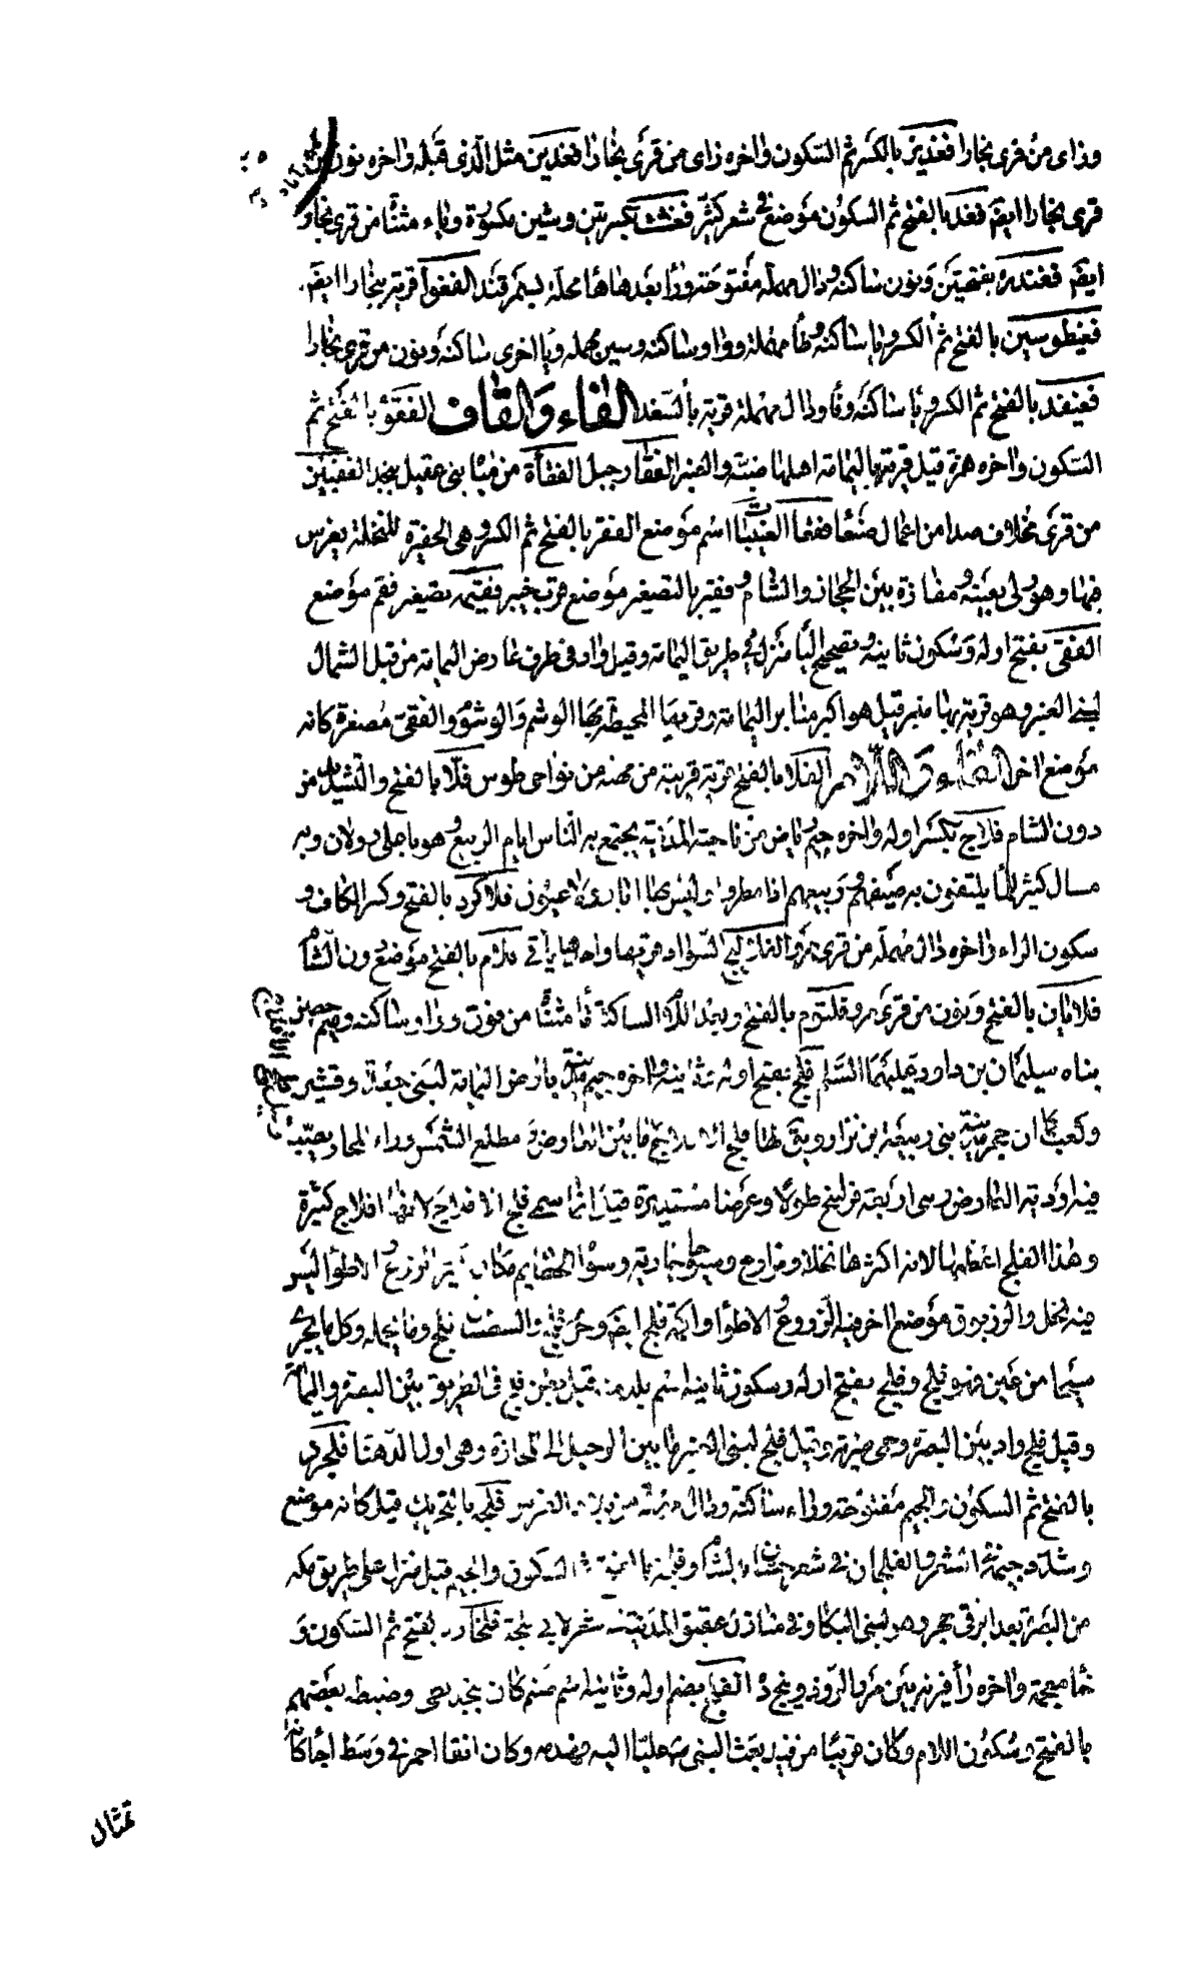 وزاى من قرى بخارا فغديز بالكسر ثم السكون واخره زاى من قرى بخارا فغدين مثل الذى قبله واخره نون من
قرى بخارا ايضم فغد بالفتح ثم السكون موضع فى شعر كثير فغشت بكسرتين وشين مكسورة وتاء مثناة من قرى بخارا
ايضم فغندره بفتحتين ونون ساكنة ودال مهملة مفتوحة ورا بعدها ها محلة لسمرقند الفغوا قرية ببخارا ايضم
فغيطوسين بالفتح ثم الكسر ويا ساكنة وطا مهملة وواو ساكنة وسين مهملة ويا اخرى ساكنة ونون من قرى بخارا
فغيفد بالفتح ثم الكسر ويا ساكنة وفا ودال مهملة قرية بالسغد الفاء والقاف الفقؤ بالفتح ثم
السكون واخره همزة قيل قرية باليمامة اهلها ضبة والعنبر الفقار جبل الفقأة من مياه بنى عقيل بنجد الفقيين
من قرى مخلاف صدا من اعمال صنعا فقعا اسم موضع الفقر بالفتح ثم الكسر وهى الحفيرة للنخلة يغرس
فيها وهو بعينه ومفازة بين الحجاز والشام وفقير بالتصغير موضع قرب خيبر فقيم تصغير فقم موضع
الفقى بفتح اوله وسكون ثانيه وتصحيح اليا منزل فى طريق اليمامة وقيل واد فى طرف عارض اليمامة من قبل الشمال
لبنى العنبر وهو قرية بها منبر قيل هو اكبر منابر اليمامة وقربها المحيطة بها الوشم والوشوم والفقى مصغرة كانه
موضع اخر الفاء واللام الفلا بالفتح قرية قريبة من مهنه من نواحى طوس فلا بالفتح والتشديد من
دون الشام فلاج بكسر اوله واخره جيم رياض من ناحية المدينة يجتمع به الناس ايام الربيع وهو باعلى رولان وبه
مسال كثير الما يلتقون به صيفهم وربيعهم اذا مطروا وليس بها ابار ولا عيون فلاكرد بالفتح وكسر الكاف و
سكون الراء واخره دال مهملة من قرى مرو الفلاليج السواد قريتها واحدها يأتى فلام بالفتح موضع دون الشام
فلامان بالفتح ونون من قرى مرو فلتوم بالفتح وبعد اللام الساكنة تا مثناة من فوق وواو ساكنة وميم حصن
بناه سليمان بن داود عليهما السلام فلج بفتح اوله وثانيه واخره جيم مدينة بارض اليمامة لبنى جعدة وقشير
وكعب كما ان حجر مدينة بنى ربيعة بن نزار ويق لها فلج الافلاج ما بين العارض و مطلع الشمس وراء المجازة يصب
فيه اودية العارض وهى اربعة فراسخ طولا وعرضا مستديرة قيل انما سمى فلج الافلاج لانها افلاج كثيرة
وهذا الفلج اعظمها لانه اكثرها نخلا ومزارع وسيوحا جارية وسوى الحظائم مكان نزرع الاطوا ليس
فيه نخل والزرنوق موضع اخر فيه الزروع والاطوا واكمة فلج ايضم وحزم فلج والسفت فلج وما يجمله وكل ما يجرى
سيحا من عين فهو فلج وفلج بفتح اوله وسكون ثانيه اسم بلد قيل بطن فلج فى الطريق بين البصرة واليمامة
وقيل فلج واد بين البصرة وحمى ضرية وقيل فلج لبنى العنبر ما بين الرحيل الى المجازة وهى اول الدهنا فلجرد
بالفتح ثم السكون والجيم مفتوحة وراء ساكنة ودال مهملة من بلاد الفرس فلجه بالتحريك قيل كانه موضع
وشدد جيمه الشعر والفلجان فى شعر بالشام وفلجة بالفتح ثم السكون والجيم قيل منزل على طريق مكة
من البصرة بعد ابرقى حجر وهو لبنى البكا وفى منازل عقيق المدينة فلخار بفتح ثم السكون و
خا معجمة واخره را قرية بين مرو الروذ وبنج ده الفلس بضم اوله وثانيه اسم صنم كان بنجد وضبطه بعضهم
بالفتح وسكون اللام وكان قريبا من فيد بعث النبى ص عليا اليه فهدمه وكان انفا احمر فى وسط اجا كانه
تمثال